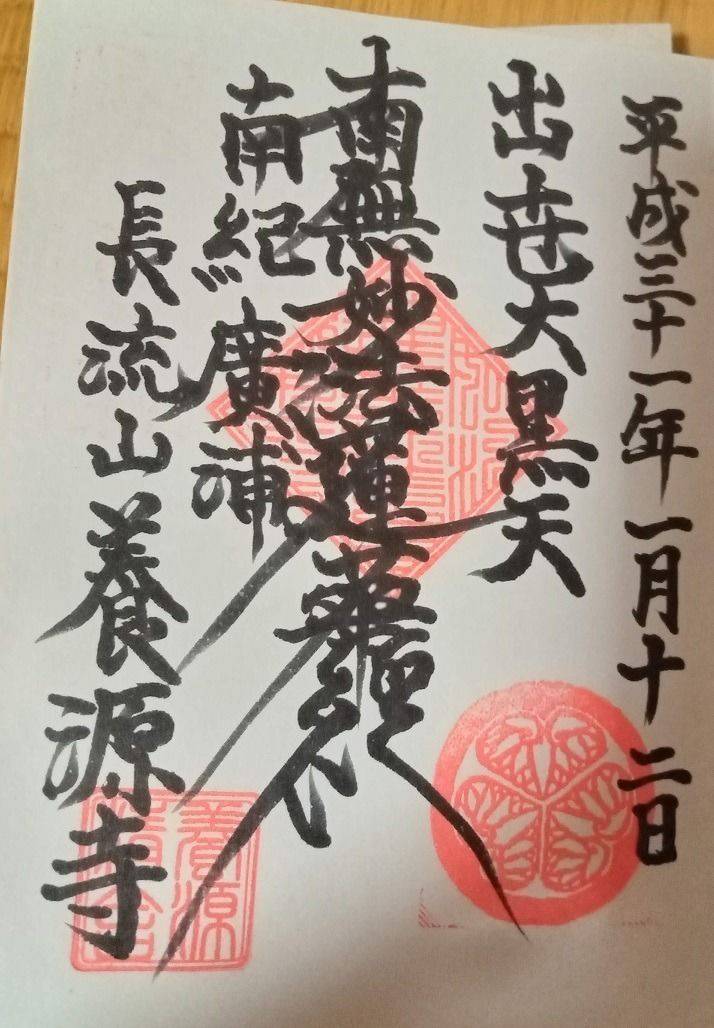 平成三十一年一月十二日
出世大黒天
南無妙法蓮華経
南紀廣浦
長流山養源寺
養源